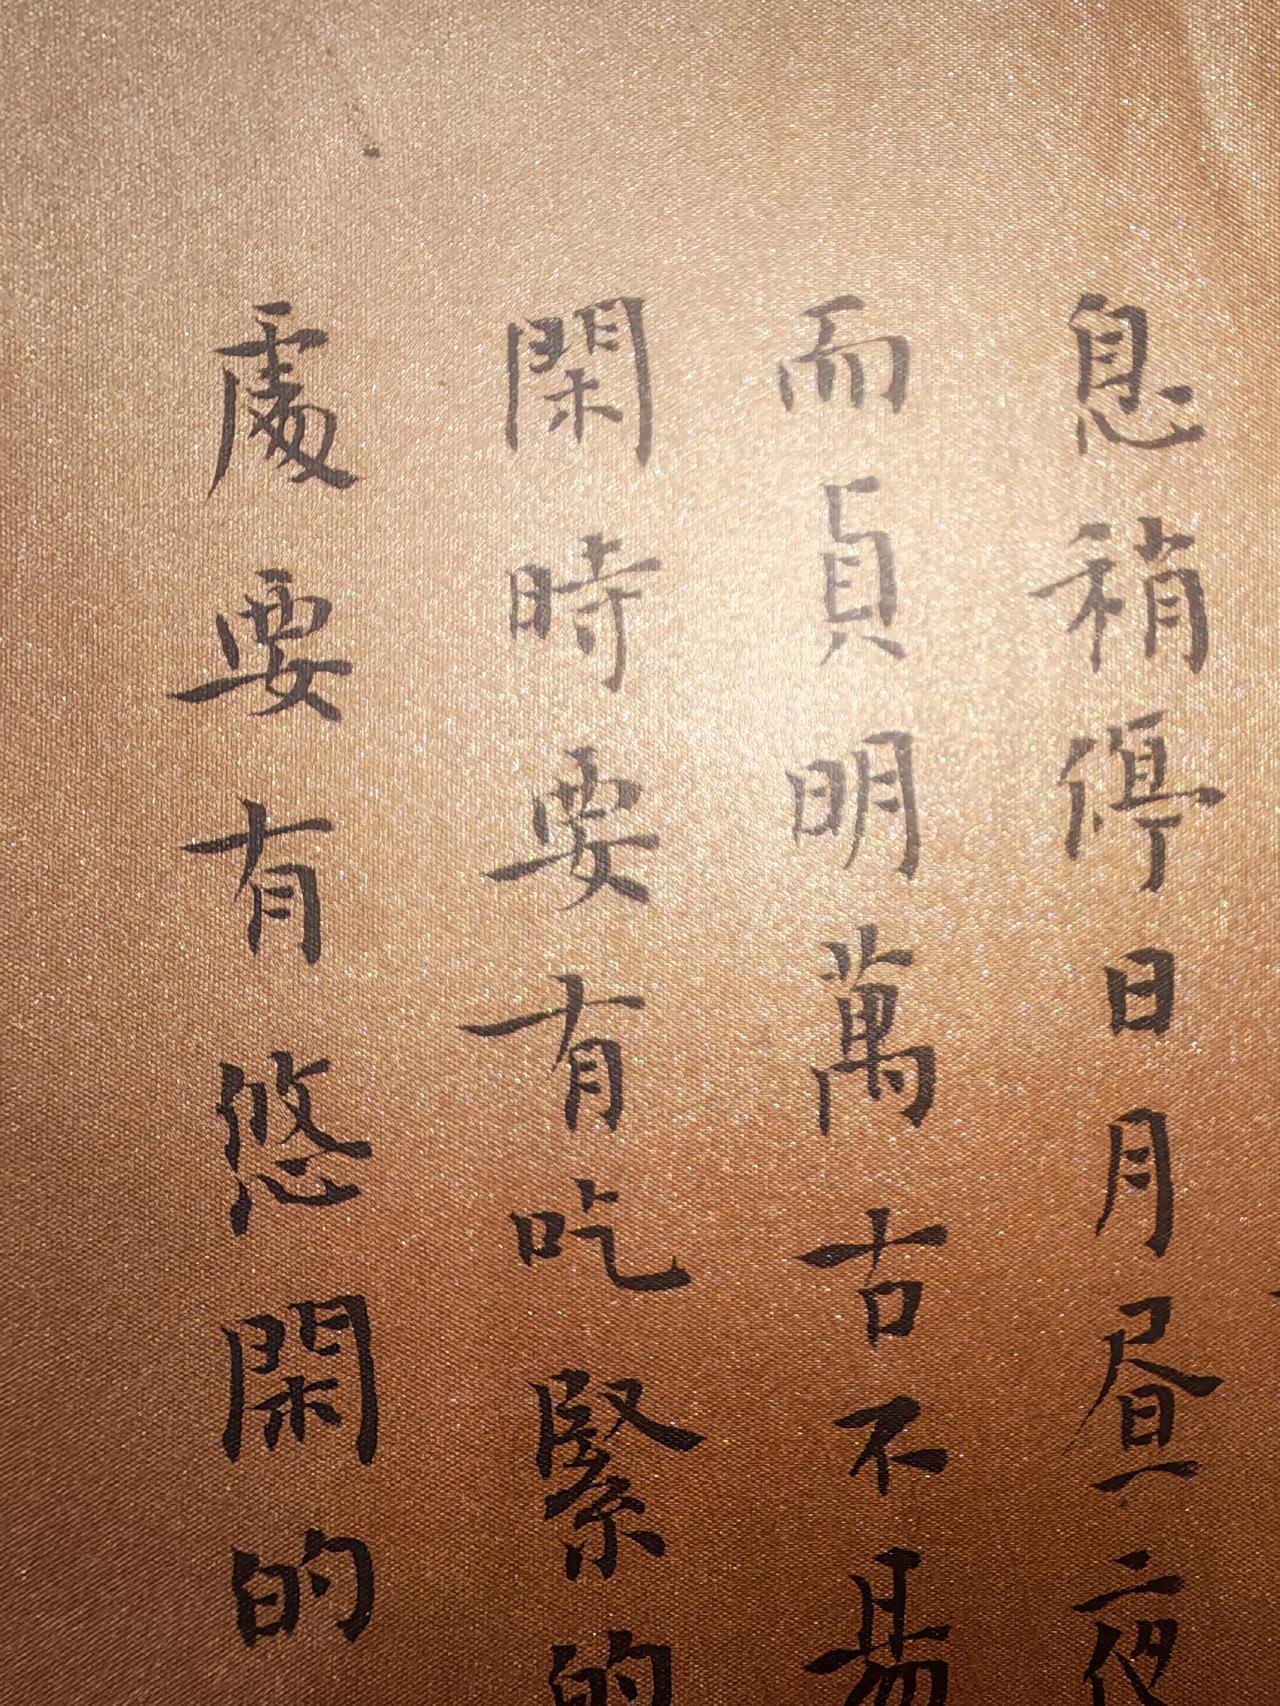 息稍停日月昼夜
而貞明萬古不易
閑時要有吃緊的
處要有悠閑的